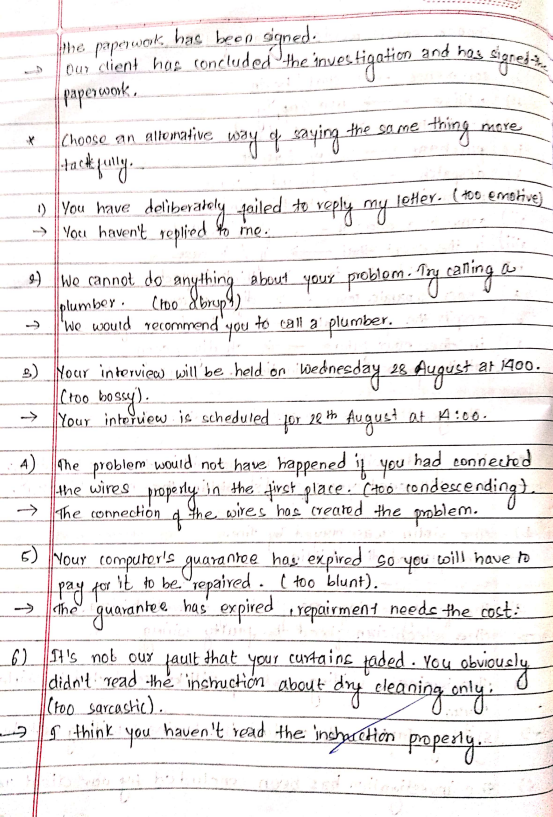 the paperwork has been signed.
→ Our client has concluded the investigation and has signed the
paperwork.
* Choose an alternative way of saying the same thing more
tactfully.
1) You have deliberately failed to reply my letter. (too emotive)
→ You haven't replied to me.
2) We cannot do anything about your problem. Try calling a
plumber. (too abrupt)
→ We would recommend you to call a plumber.
3) Your interview will be held on Wednesday 28 August at 1400.
(too bossy).
→ Your interview is scheduled for 28th August at 14:00.
4) The problem would not have happened if you had connected
the wires properly in the first place. (too condescending).
→ The connection of the wires has created the problem.
5) Your computer's guarantee has expired so you will have to
pay for it to be repaired. (too blunt).
→ The guarantee has expired, repairment needs the cost.
6) It's not our fault that your curtains faded. You obviously
didn't read the instruction about dry cleaning only.
(too sarcastic).
→ I think you haven't read the instruction properly.